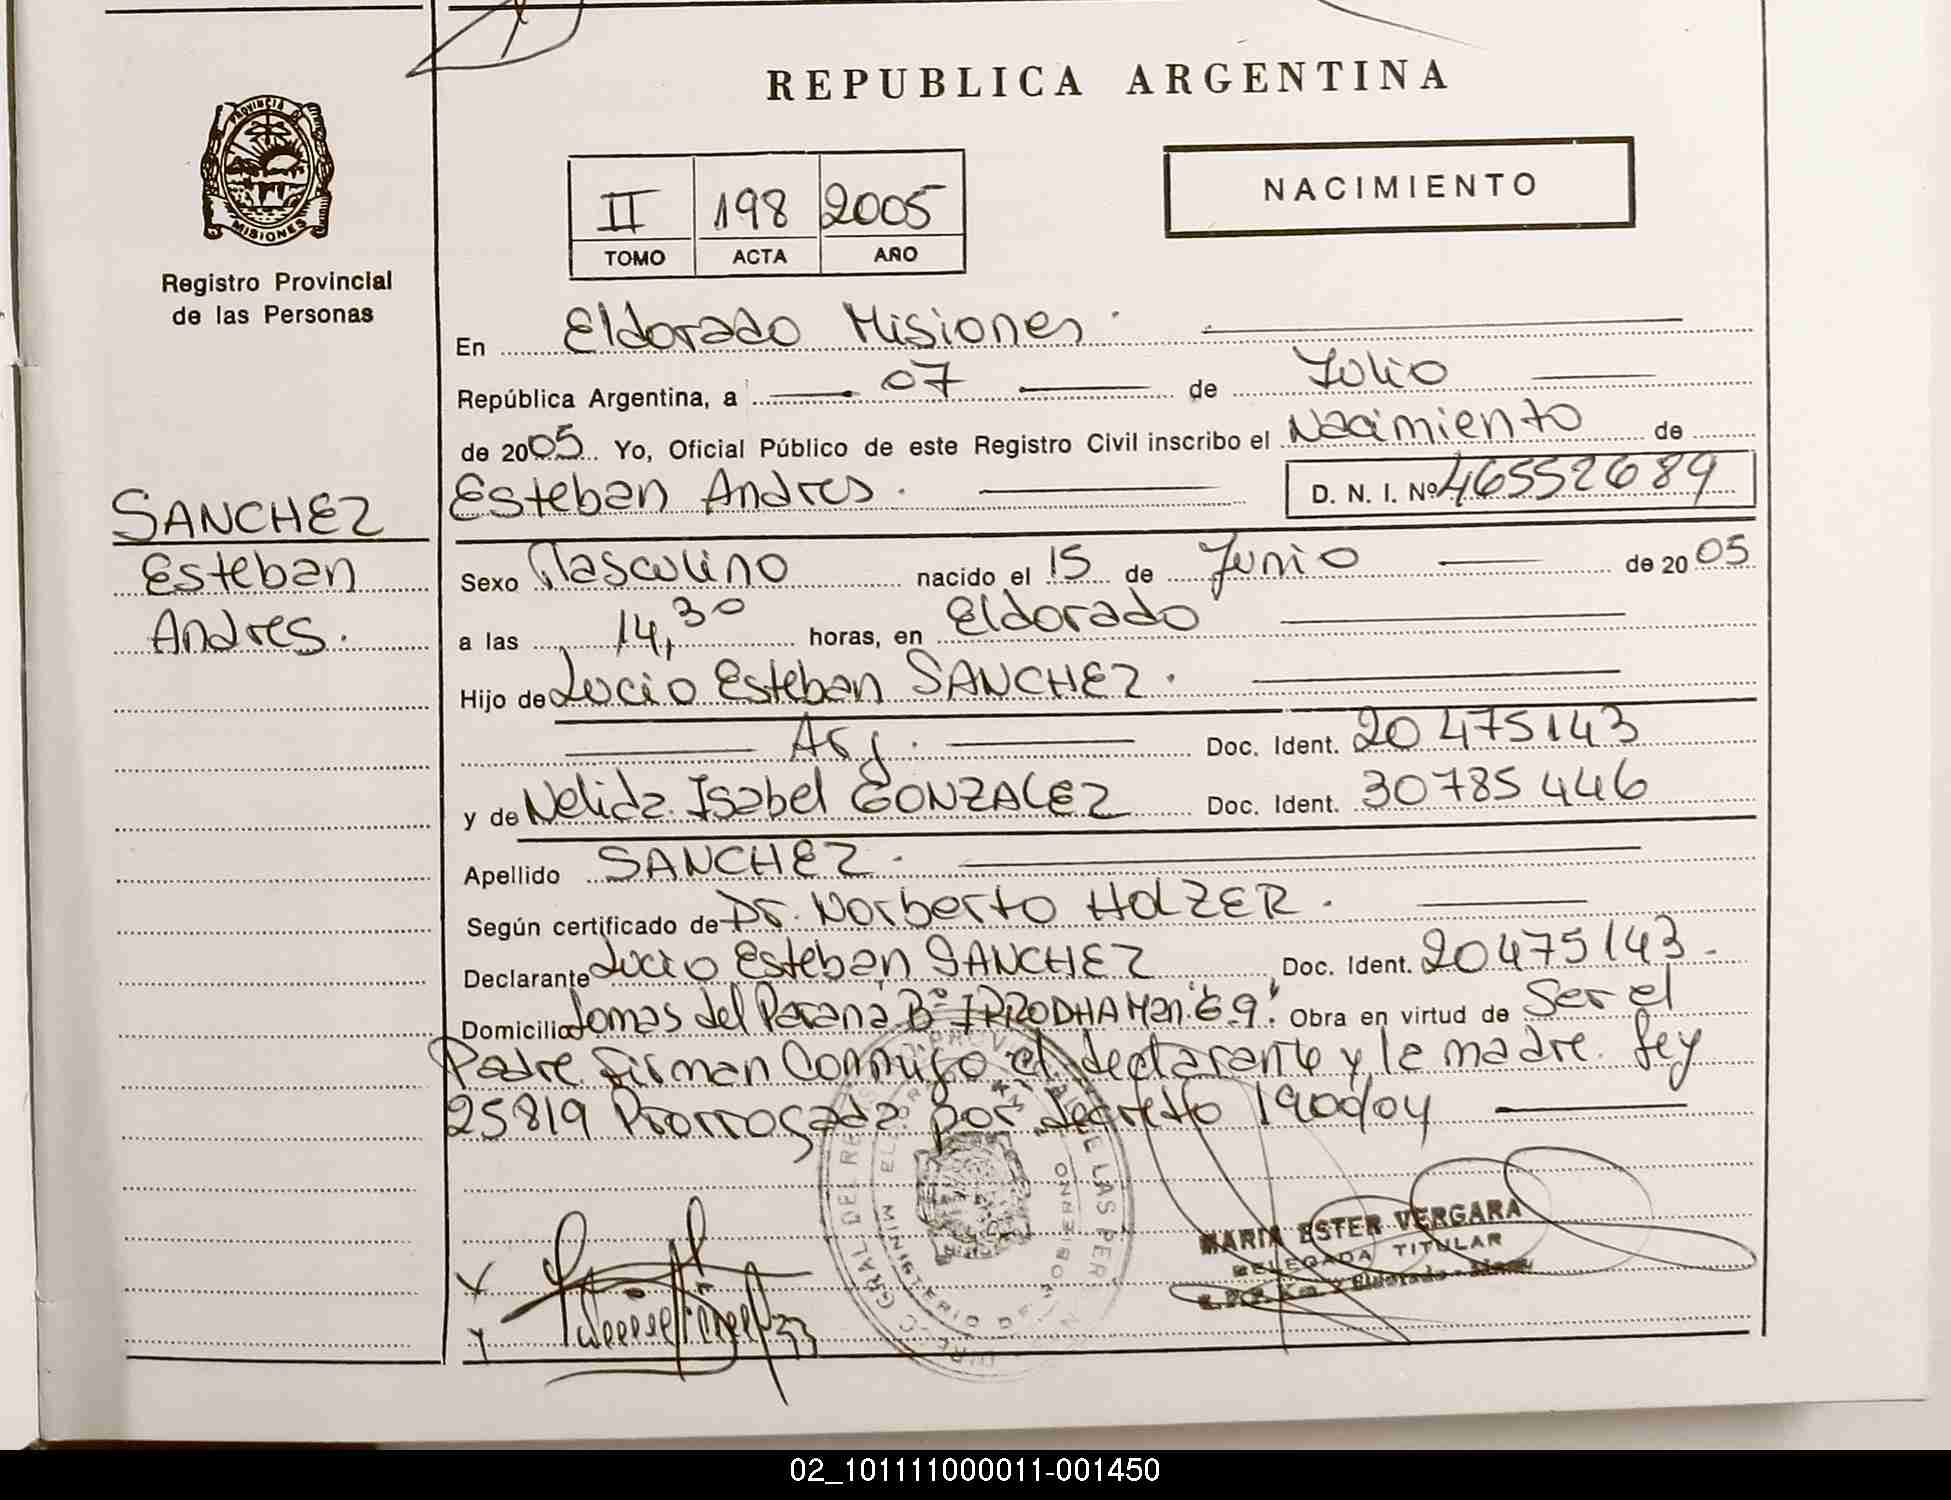 REPUBLICA ARGENTINA
PROVINCIA DE
MISIONES
Registro Provincial
de las Personas
II 198 2005
TOMO ACTA AÑO
NACIMIENTO
En Eldorado Misiones.
República Argentina, a 07 de Julio
de 2005 Yo, Oficial Público de este Registro Civil inscribo el Nacimiento de
Esteban Andres. D. N. I. Nº 46552689
SANCHEZ
Esteban
Andres.
Sexo Masculino nacido el 15 de Junio de 2005
a las 14,30 horas, en Eldorado
Hijo de Lucio Esteban SANCHEZ.
Arg. Doc. Ident. 20475143
y de Nelida Isabel GONZALEZ Doc. Ident. 30785446
Apellido SANCHEZ.
Según certificado de Dr. Norberto HOLZER.
Declarante Lucio Esteban SANCHEZ Doc. Ident. 20475143.
Domicilio Lomas del Paraná Bº IPRODHA Obra en virtud de Ser el
Padre. firman Conmigo el declarante y la madre. Ley
25819 Prorrogada por decreto 1900/04
MARIA ESTER VERGARA
DELEGADA TITULAR
Eldorado
02_101111000011-001450